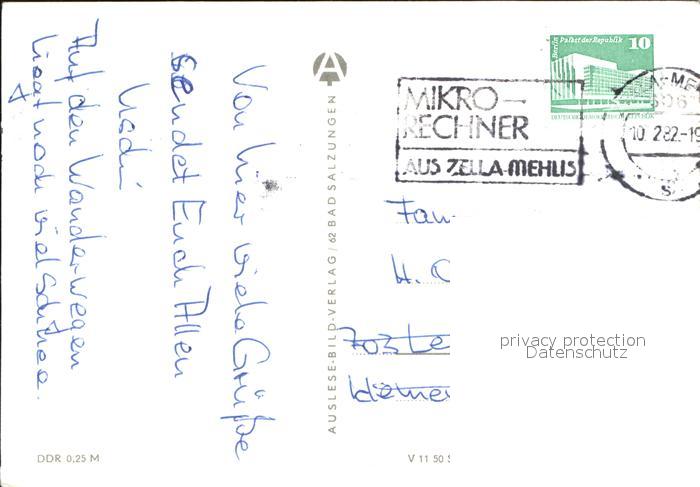 Von hier viele Grüße
sendet Euch Allen
Uschi
Auf den Wanderwegen
liegt noch viel Schnee.
DDR 0,25 M
AUSLESE-BILD-VERLAG / 62 BAD SALZUNGEN
Berlin Palast der Republik 10
DEUTSCHE DEMOKRATISCHE REPUBLIK
MIKRO-
RECHNER
AUS ZELLA-MEHLIS
10.2.82.-19
Fam
H. C
privacy protection
Datenschutz
V 11 50